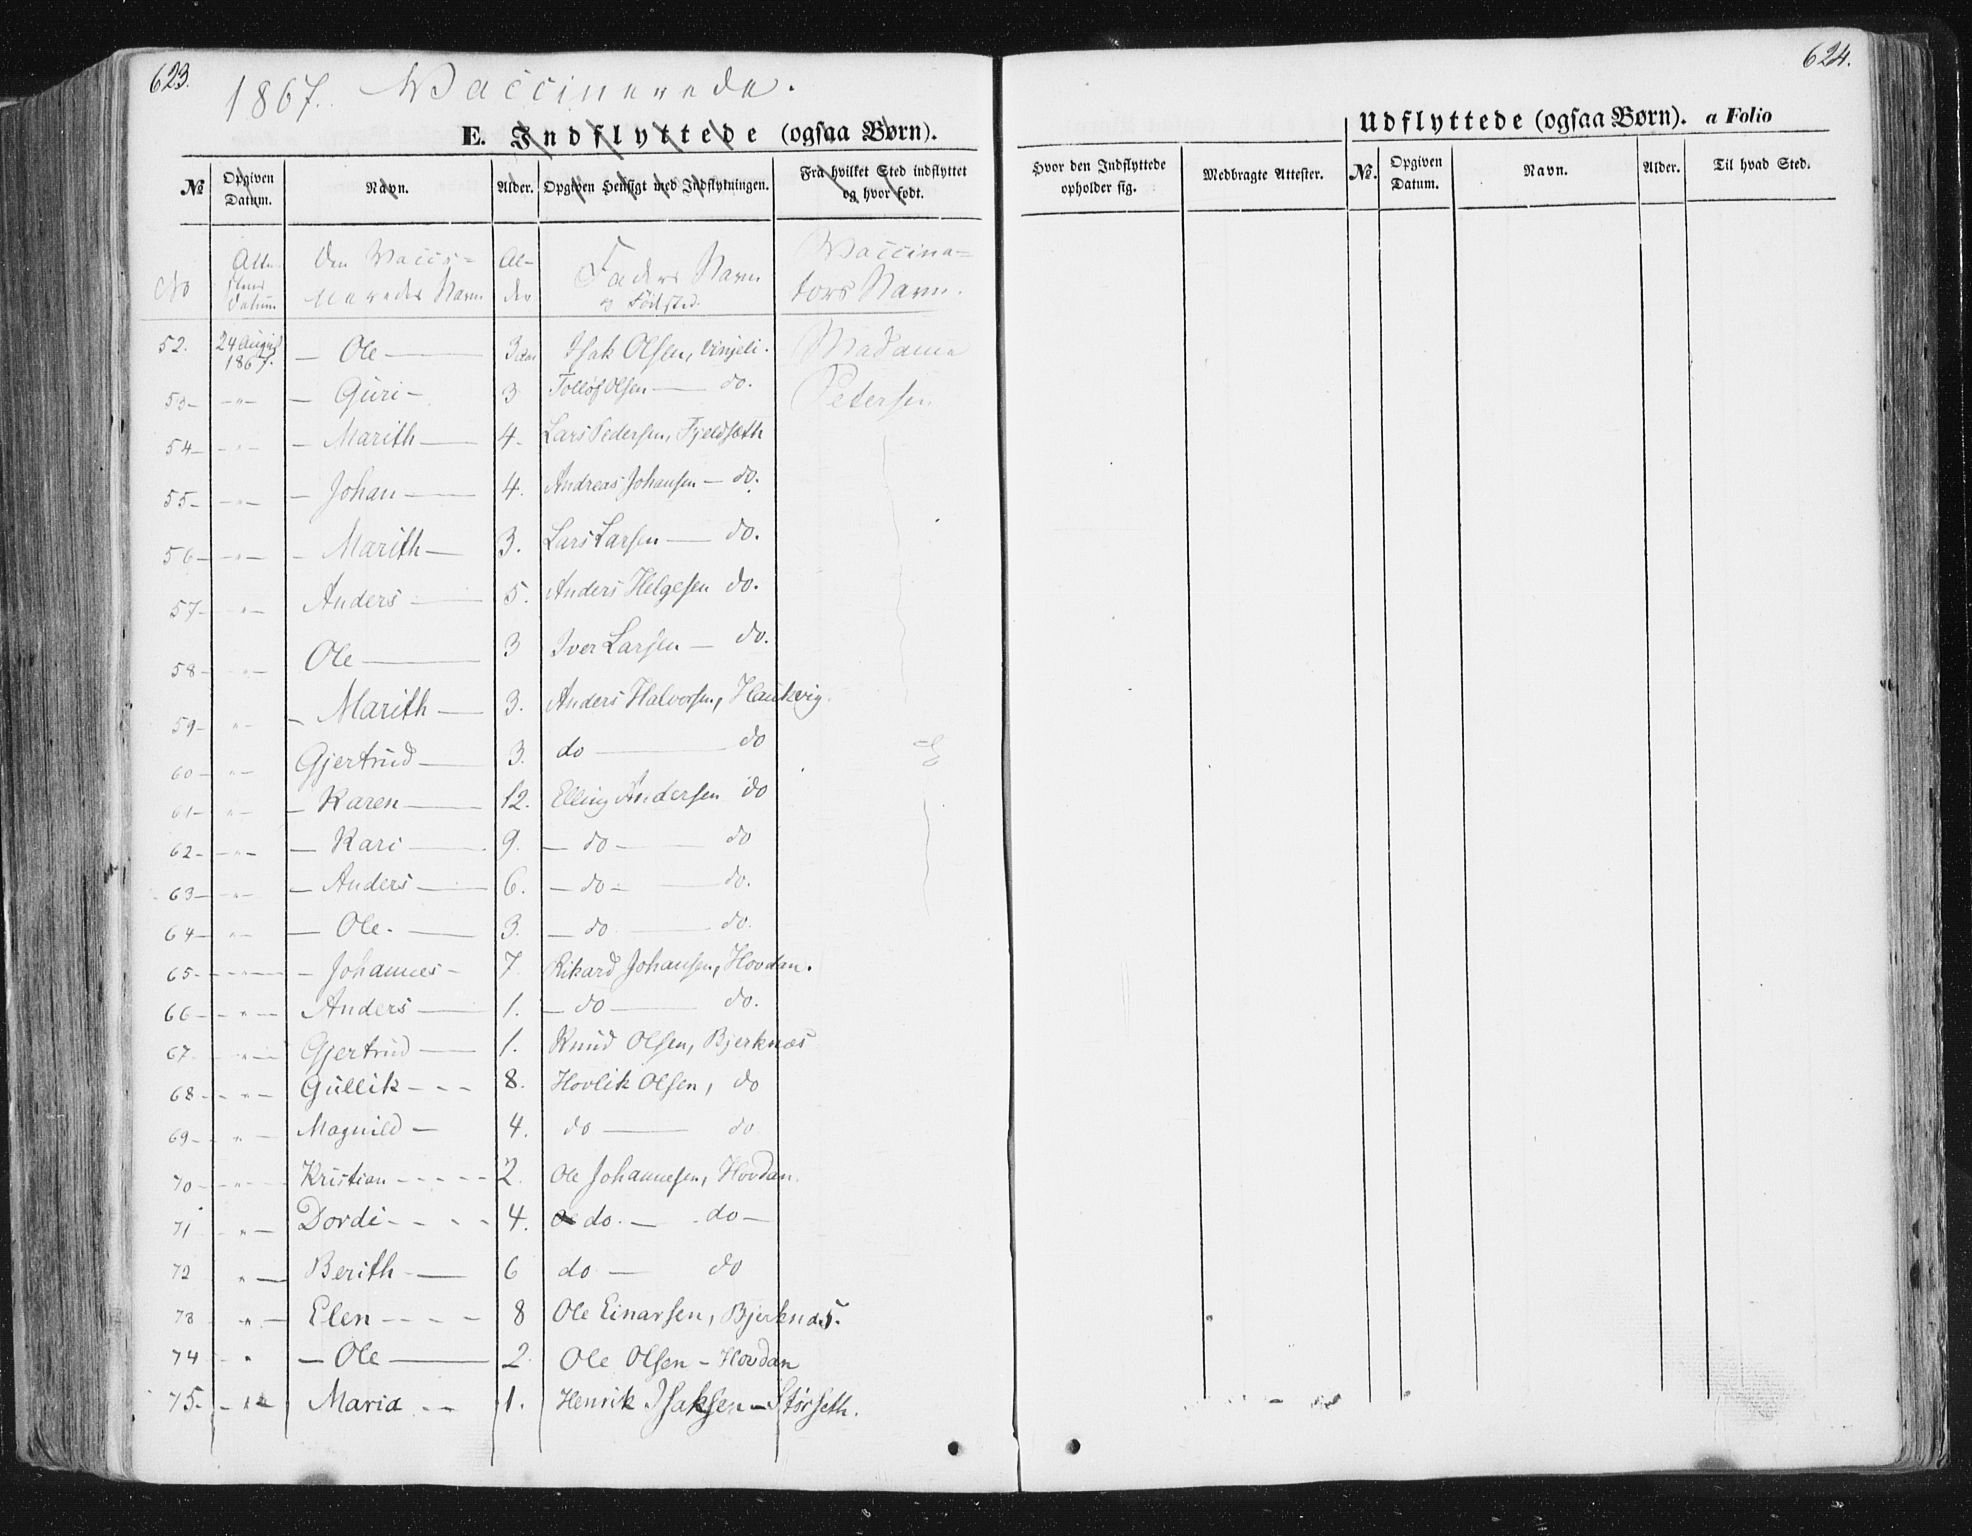 623.
1867. Vaccinerede.
E. Indflyttede (ogsaa Børn).
№ Opgiven Datum. Navn. Alder. Opgiven Hensigt med Indflytningen. Fra hvilket Sted indflyttet og hvor født.
No Datum Den Vacci=neredes Navn Al-der Faders Navn og Fødsted. Vaccina=tors Navn.
52. 24 August 1867. — Ole — 3 Isak Olsen, Vinjeli. Madame
53 — " — — Guri — 3 Tollof Olsen — do. Petersen
54 — " — — Marith — 4. Lars Pedersen, Fjeldseth
55 — " — — Johan — 4. Andreas Johansen — do.
56 — " — — Marith — 3. Lars Larsen — do.
57 — " — Anders — 5. Anders Helgesen do.
58 — " — Ole — 3 Iver Larsen — do.
59 — " — Marith — 3. Anders Halvorsen, Haukvig.
60 — " — Gjertrud — 3. do — do
61 — " — — Karen — 12. Elling Andersen do
62 — " — — Kari — 9. — do — do
63 — " — — Anders — 6. — do — do.
64 — " — — Ole. — 3. — do — do.
65 — " — — Johannes — 7. Rikard Johansen, Hovdan.
66 — " — Anders — 1. — do — do.
67 — " — Gjertrud — 1. Knud Olsen, Bjerknæs
68 — " — Gullik - - - 8. Hovlik Olsen, do
69 — " — Magnild — 4. do — do
70 — " — Kristian - - - - 2. Ole Johannesen, Hovdan.
71 " — Dordi - - - - 4. do. — do —
72 " — Berith — 6 do — do
73 " — Elen - - - - 8 Ole Einarsen, Bjerknæs.
74 - " — Ole — 2. Ole Olsen — Hovdan
75 - " - Maria - - 1. Henrik Isaksen — Størseth.
624.
Udflyttede (ogsaa Børn). a Folio
Hvor den Indflyttede opholder sig. Medbragte Attester. №. Opgiven Datum. Navn. Alder. Til hvad Sted.